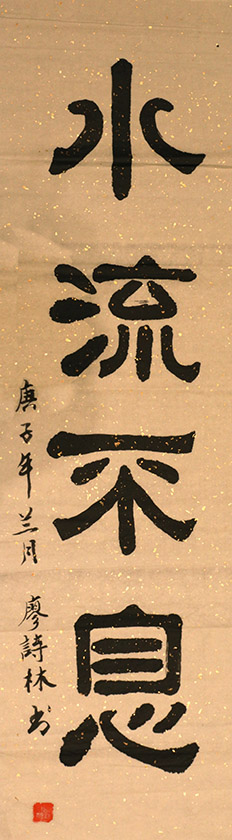 水流不息
庚子年兰月 廖詩林书